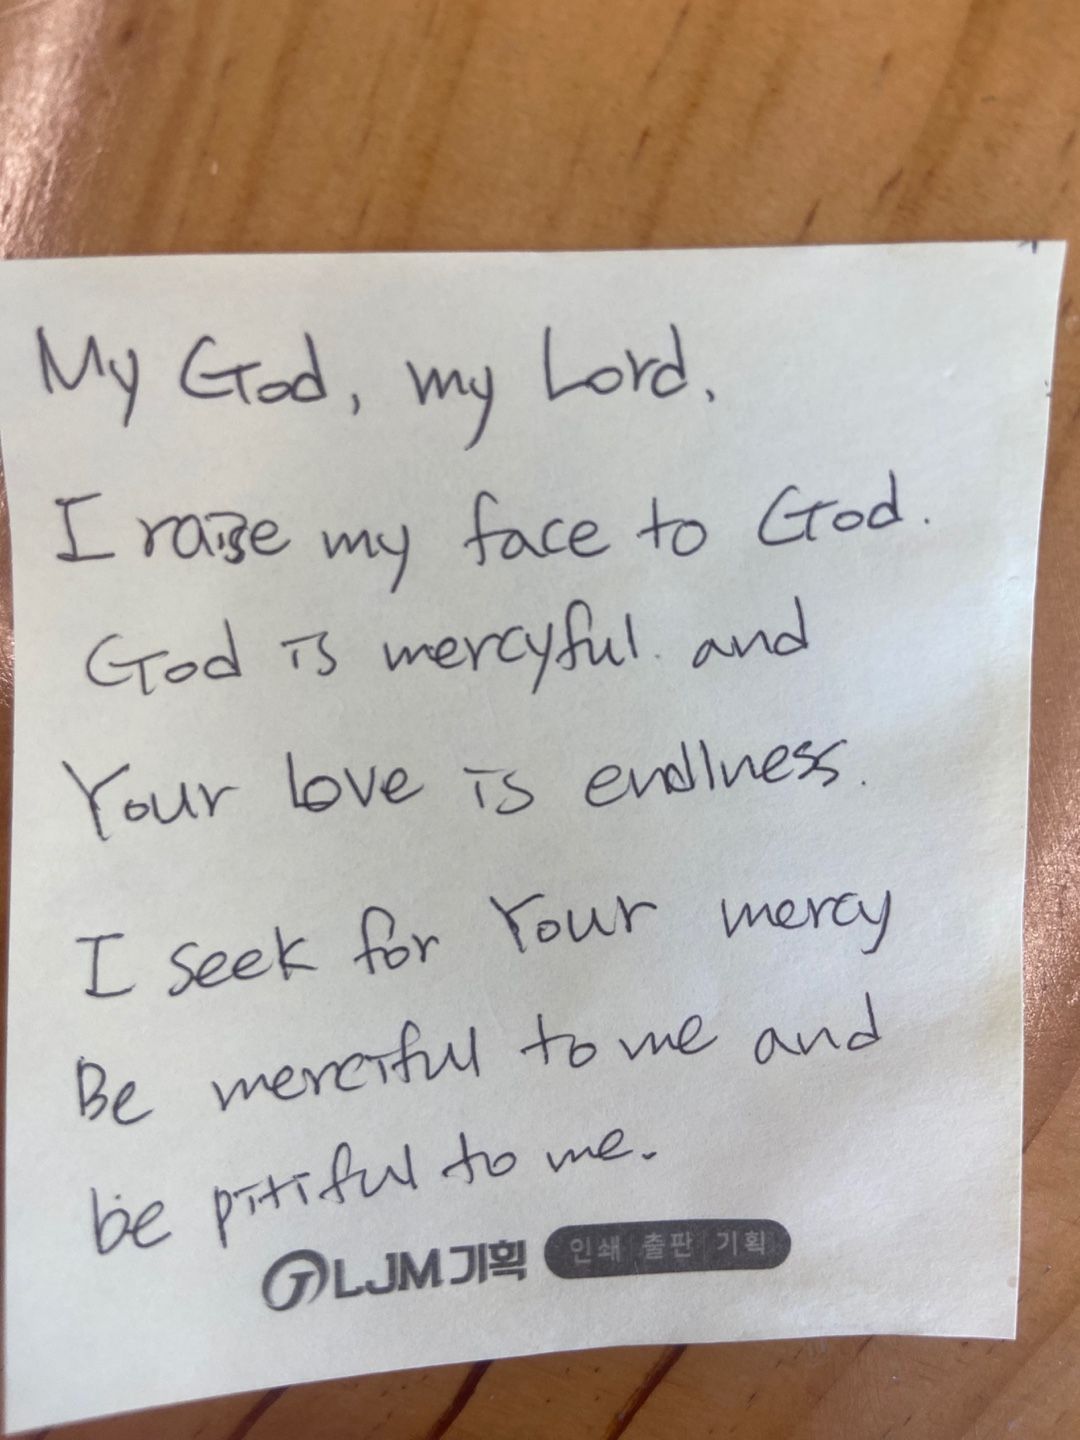 My God, my Lord.
I raise my face to God.
God is mercyful. and
Your love is endlness.
I seek for Your mercy
Be merciful to me and
be pitiful to me.
LJM기획 인쇄 출판 기획